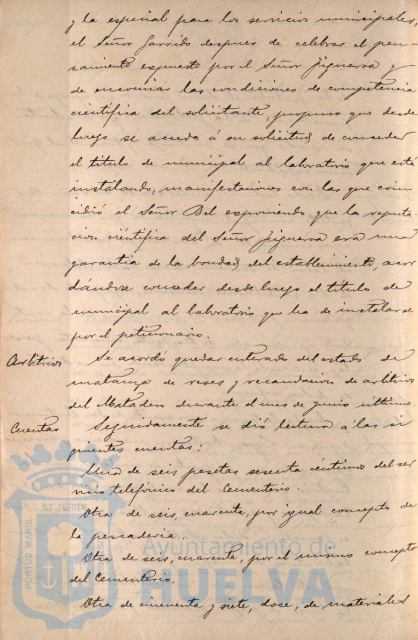 y la especial para los servicios municipales,
el Señor Garrido despues de celebrar el pen
samiento expuesto por el Señor Figueroa y
de enumerar las condiciones de competencia
cientifica del solicitante, propuso que desde
luego se acceda á su solicitud de conceder
el titulo de municipal al laboratorio que está
instalando, manifestaciones con las que coin
cidió el Señor Bel exponiendo que la reputa
cion cientifica del Señor Figueroa era una
garantia de la bondad del establecimiento, acor
dándose conceder desde luego el titulo de
municipal al laboratorio que ha de instalarse
por el peticionario.
Arbitrios
Se acordó quedar enterado del estado de
matanza de reses y recaudacion de arbitrios
del Matadero durante el mes de Junio último.
Cuentas
Seguidamente se dió lectura á las si
guientes cuentas:
Una de seis pesetas sesenta céntimos del ser
vicio telefónico del Cementerio.
Otra de seis, cuarenta, por igual concepto de
la pescaderia.
Otra de seis, cuarenta, por el mismo concepto
del Cementerio.
Otra de cincuenta y siete, doce, de materiales
PORTUS MARIS ET TERRAE
Ayuntamiento de
HUELVA